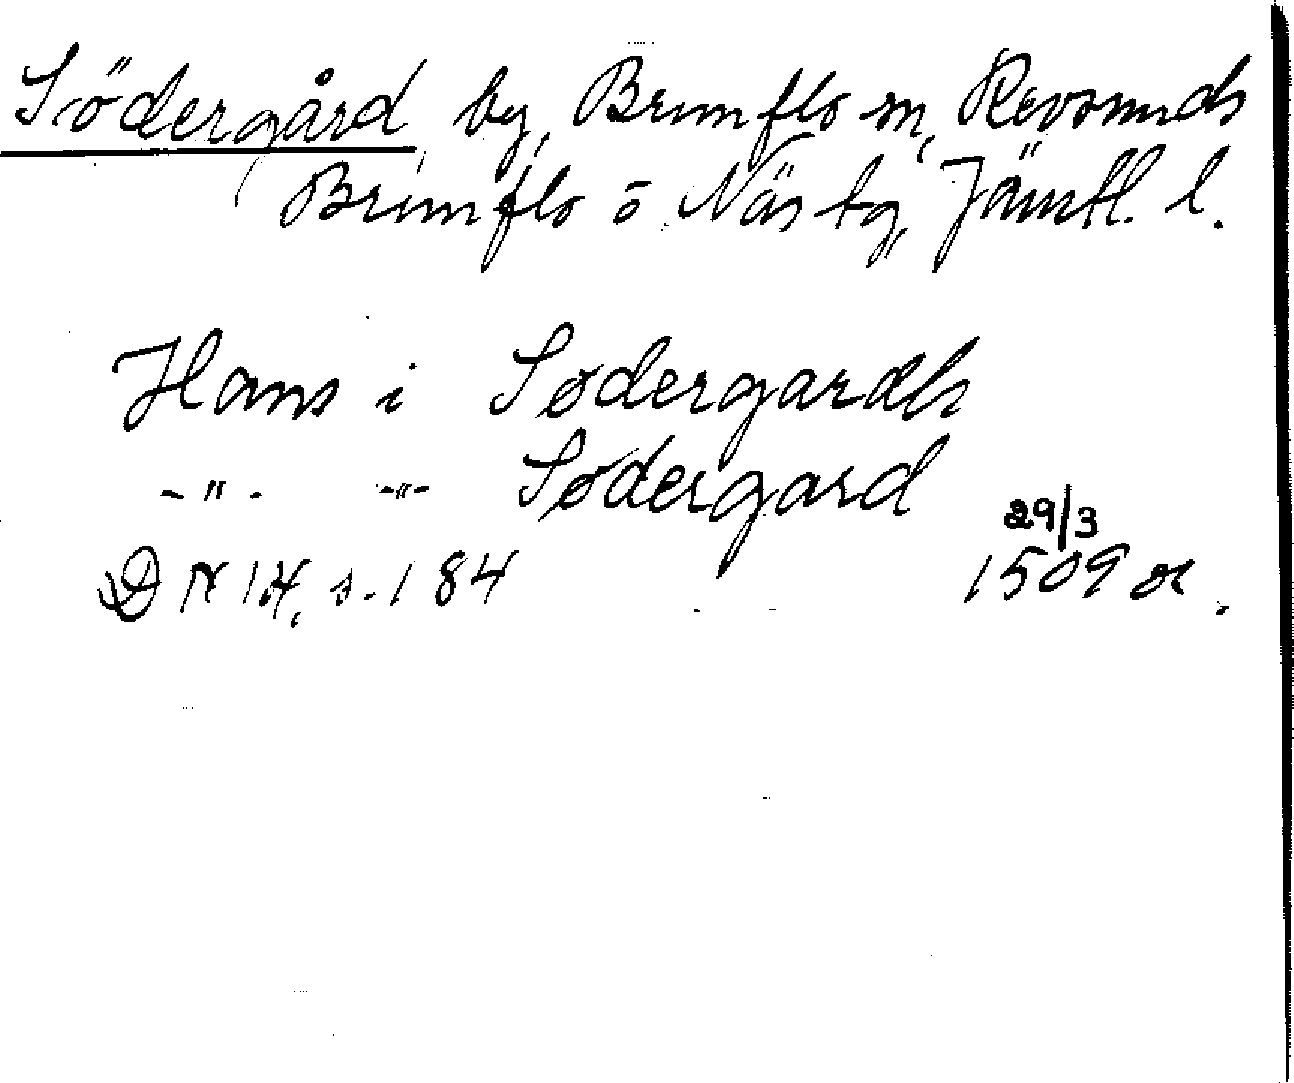 Södergård by, Brunflo sn, Revsunds
Brunflo o Näs tg, Jämtl. l.
Hans i Södergardh
-"- -"- Södergard
29/3
DN 14, s. 184 1509 or.